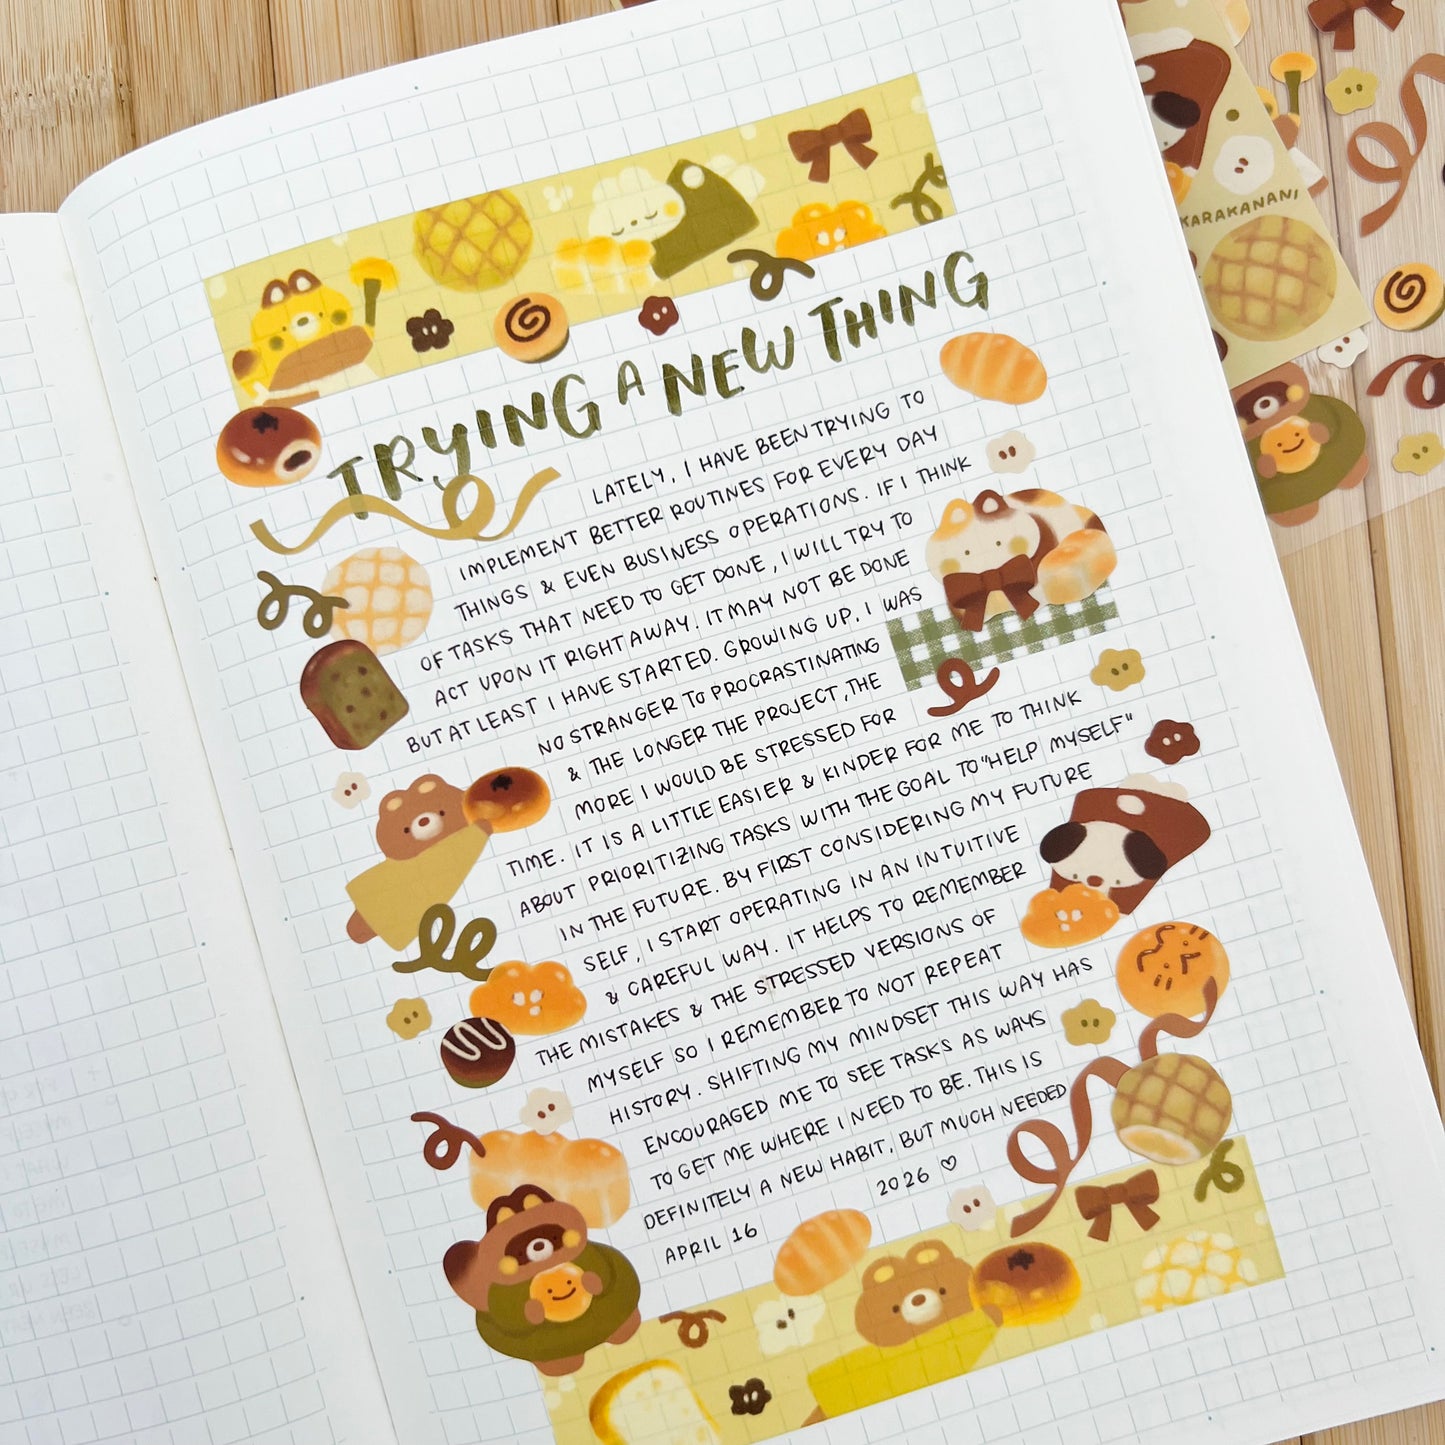 KARAKANANI
TRYING A NEW THING
LATELY, I HAVE BEEN TRYING TO
IMPLEMENT BETTER ROUTINES FOR EVERY DAY
THINGS & EVEN BUSINESS OPERATIONS. IF I THINK
OF TASKS THAT NEED TO GET DONE, I WILL TRY TO
ACT UPON IT RIGHT AWAY. IT MAY NOT BE DONE
BUT AT LEAST I HAVE STARTED. GROWING UP, I WAS
NO STRANGER TO PROCRASTINATING
& THE LONGER THE PROJECT, THE
MORE I WOULD BE STRESSED FOR
TIME. IT IS A LITTLE EASIER & KINDER FOR ME TO THINK
ABOUT PRIORITIZING TASKS WITH THE GOAL TO "HELP MYSELF"
IN THE FUTURE. BY FIRST CONSIDERING MY FUTURE
SELF, I START OPERATING IN AN INTUITIVE
& CAREFUL WAY. IT HELPS TO REMEMBER
THE MISTAKES & THE STRESSED VERSIONS OF
MYSELF SO I REMEMBER TO NOT REPEAT
HISTORY. SHIFTING MY MINDSET THIS WAY HAS
ENCOURAGED ME TO SEE TASKS AS WAYS
TO GET ME WHERE I NEED TO BE. THIS IS
DEFINITELY A NEW HABIT, BUT MUCH NEEDED
APRIL 16 2026 ♡